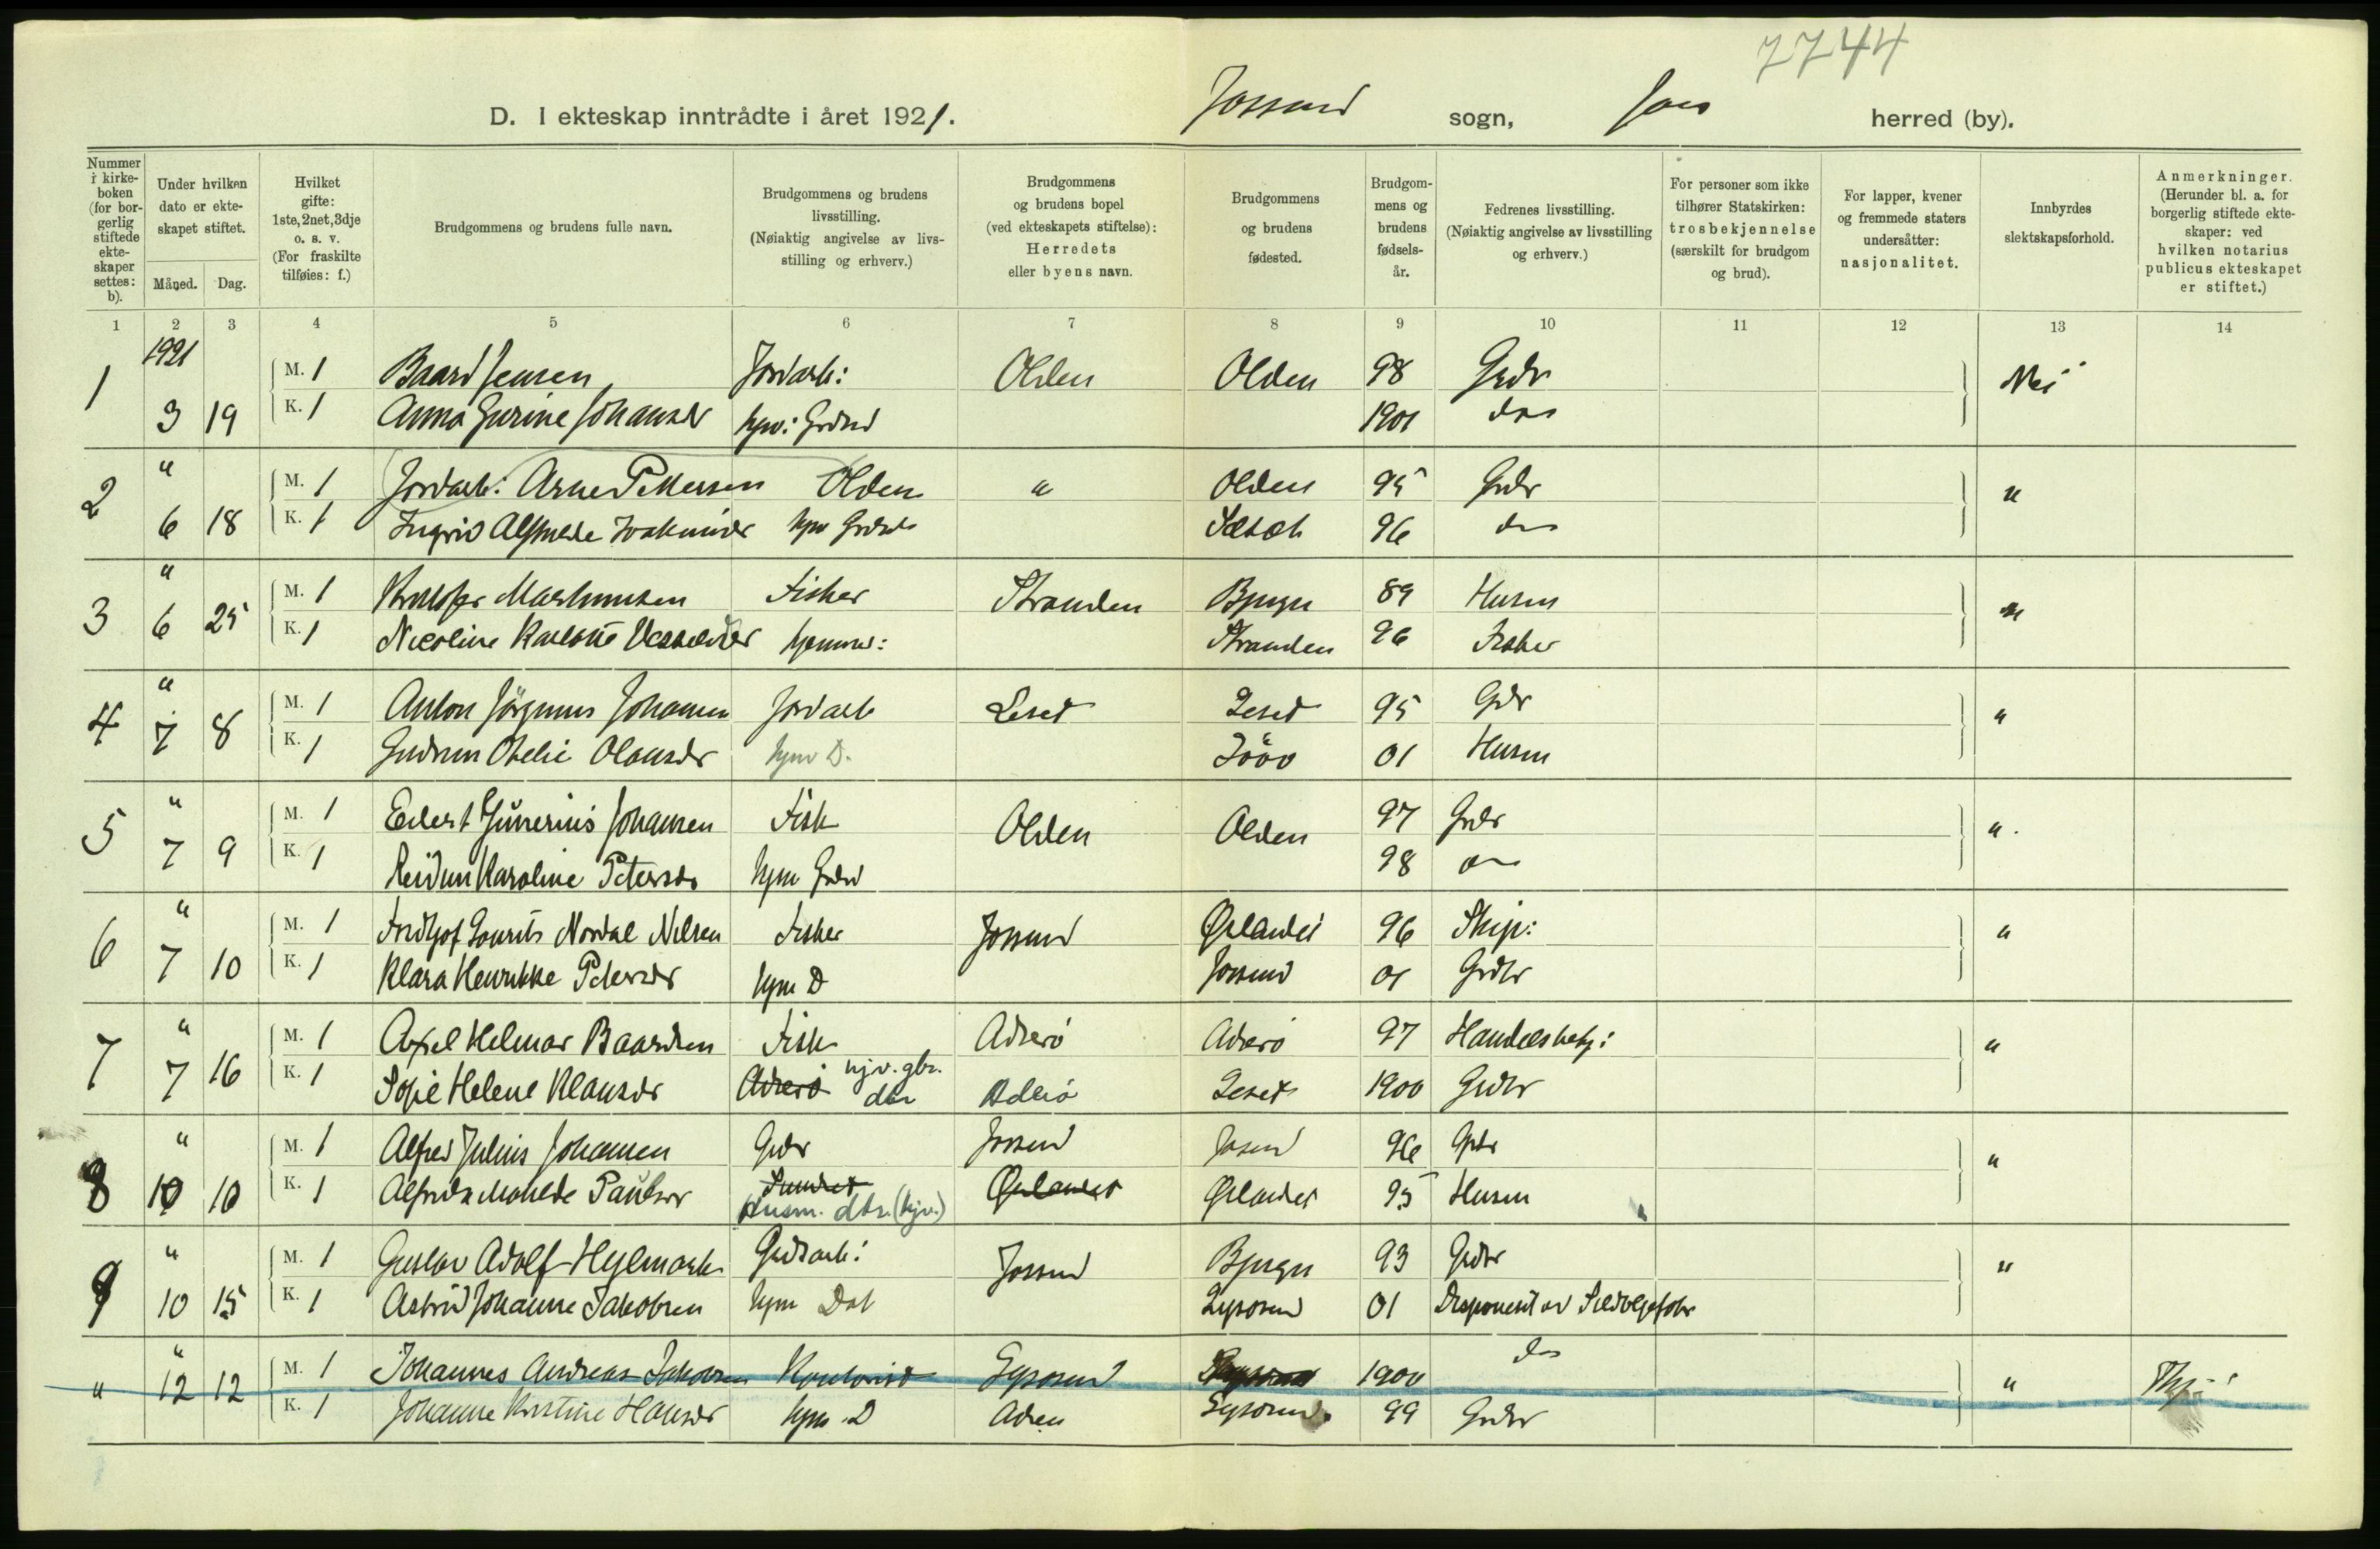 7744
D. I ekteskap inntrådte i året 1921. Jossund sogn, herred (by).
Nummer i kirkeboken (for borgerlig stiftede ekteskaper settes: b).
Under hvilken dato er ekteskapet stiftet.
Måned. Dag.
Hvilket gifte: 1ste, 2net, 3dje o. s. v. (For fraskilte tilføies: f.)
Brudgommens og brudens fulle navn.
Brudgommens og brudens livsstilling. (Nøiaktig angivelse av livsstilling og erhverv.)
Brudgommens og brudens bopel (ved ekteskapets stiftelse): Herredets eller byens navn.
Brudgommens og brudens fødested.
Brudgommens og brudens fødselsår.
Fedrenes livsstilling. (Nøiaktig angivelse av livsstilling og erhverv.)
For personer som ikke tilhører Statskirken: trosbekjennelse (særskilt for brudgom og brud).
For lapper, kvener og fremmede staters undersåtter: nasjonalitet.
Innbyrdes slektskapsforhold.
Anmerkninger. (Herunder bl. a. for borgerlig stiftede ekteskaper: ved hvilken notarius publicus ekteskapet er stiftet.)
1 2 3 4 5 6 7 8 9 10 11 12 13 14
1921
1 M. 1 Baard Jensen Jordarb: Olden Olden 98 Grdr Nei
3 19 K. 1 Anna Gurine Johansdr 1901 do
2 " M. 1 Jordarb: Arne Pettersen Olden " Olden 95 Grdr "
6 18 K. 1 Ingrid Joakimsdr 96 do
3 " M. 1 Fisker Stranden Bjugn 89 Husm "
6 25 K. 1 Nicoline Karlotte Stranden 96 Fisker
4 " M. 1 Anton Jørginus Johansen Jordarb Leset Leset 95 Gdr "
7 8 K. 1 Gudrun Otelie Olausdr hjm D. 01 Husm
5 " M. 1 Edert Gunerius Johansen Fisk Olden Olden 97 Grdr "
7 9 K. 1 Reidun Karoline Petersdr 98 do
6 " M. 1 Fridtjof Lourits Nordal Nilsen Fisker Jossund Ørlandet 96 Skip: "
7 10 K. 1 Klara Henrikke Petersdr hjm D Jossund 01 Grdbr
7 " M. 1 Axel Helmar Baardsen Fisk Adserö Adserö 97 "
7 16 K. 1 Sofie Helene Klausdr Adserö hjv. gbr. dtr Adserö Leset 1900 Grdbr
8 " M. 1 Alfred Julius Johansen Grdr Jossund Jossund 96 Grdr "
10 10 K. 1 Paulsdr Husm. dtr. (hjv.) Ørlandet Ørlandet 95 Husm
9 " M. 1 Gustav Adolf Hylmark Grdsarb: Jossund Bjugn 93 Grdbr "
10 15 K. 1 Astrid Johanne Jakobsen hjm Dat Lysosund 01 Disponent av Sildoljefabr
" " M. 1 Johannes Andreas Jakobsen Kontorist Lysosund 1900 do "
12 12 K. 1 Johanne Kristine Hansdr hjm D Lysosund 99 Grdbr